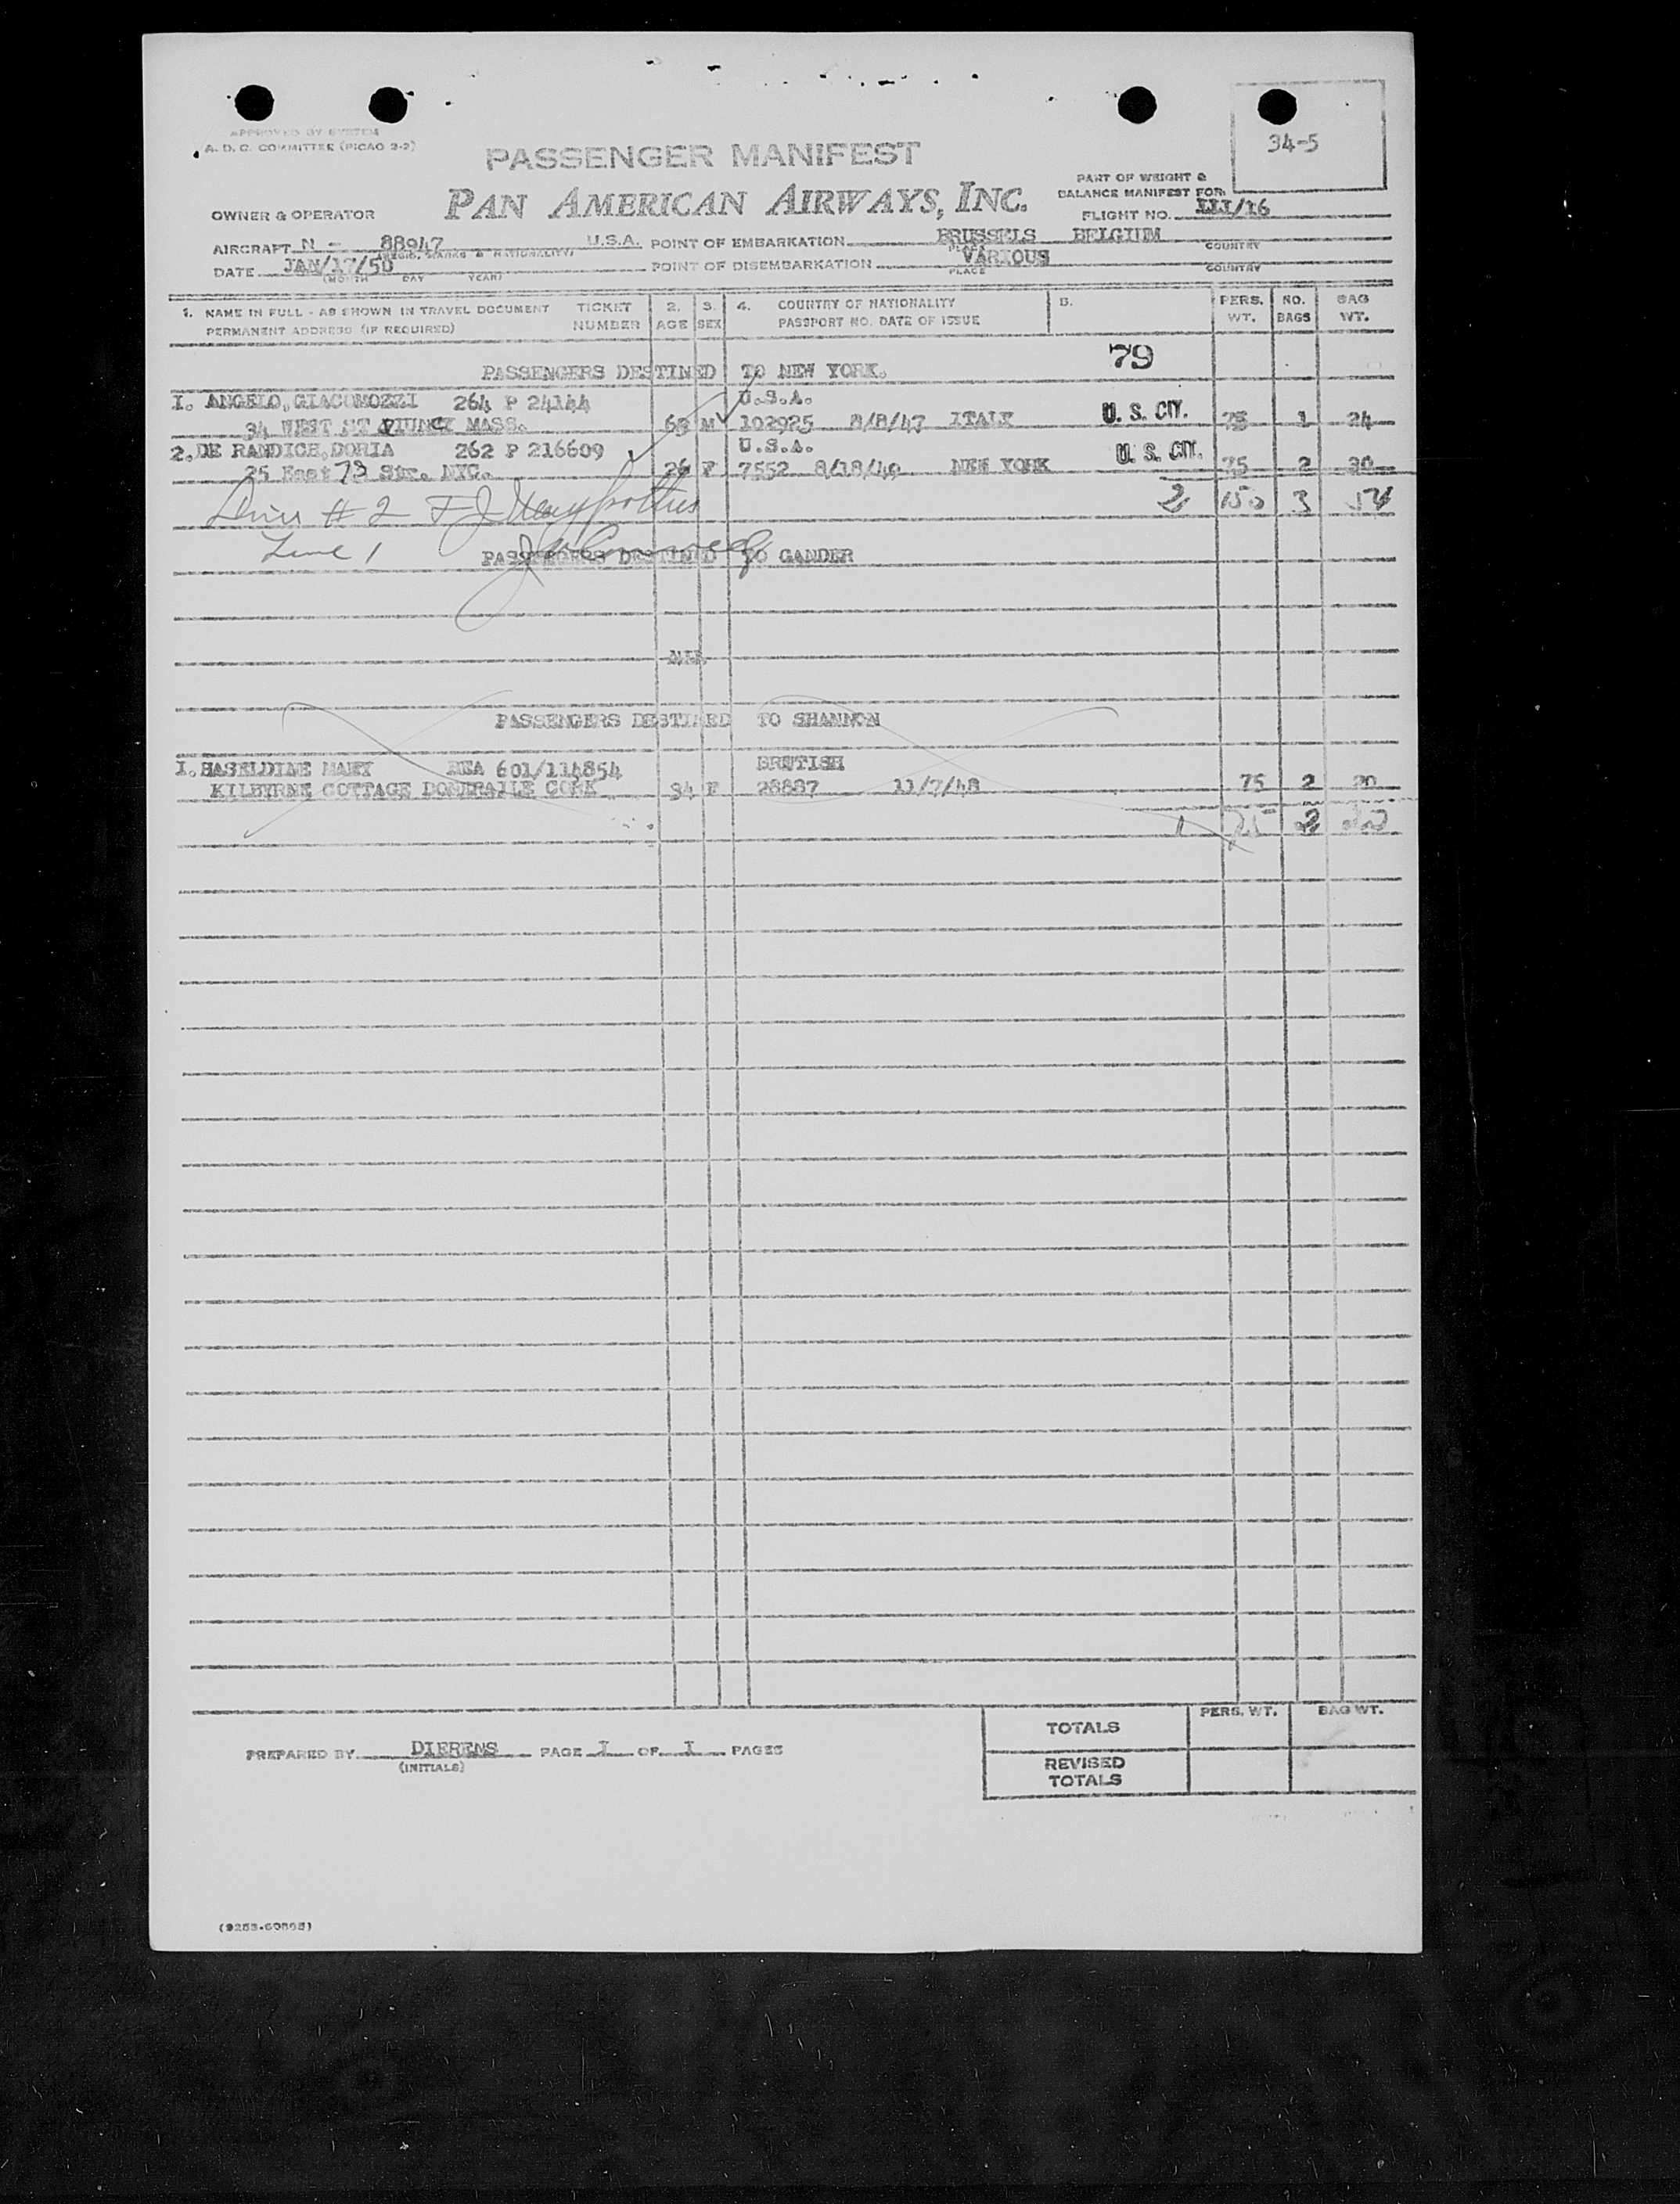 APPROVED BY SYSTEM
A. D. C. COMMITTEE (PICAO 2-2)
34-5
PASSENGER MANIFEST
PAN AMERICAN AIRWAYS, INC.
PART OF WEIGHT &
BALANCE MANIFEST FOR
FLIGHT NO. 111/16
OWNER & OPERATOR
AIRCRAFT N - 88947 U.S.A. POINT OF EMBARKATION BRUSSELS BELGIUM
(REGIS. MARKS & NATIONALITY) PLACE COUNTRY
DATE JAN/17/50 POINT OF DISEMBARKATION VARIOUS
(MONTH DAY YEAR) PLACE COUNTRY
1. NAME IN FULL - AS SHOWN IN TRAVEL DOCUMENT TICKET 2. 3. 4. COUNTRY OF NATIONALITY 5. PERS. NO. BAG
PERMANENT ADDRESS (IF REQUIRED) NUMBER AGE SEX PASSPORT NO. DATE OF ISSUE WT. BAGS WT.
79
PASSENGERS DESTINED TO NEW YORK.
I. ANGELO, GIACOMOZZI 264 P 24144 U.S.A.
34 WEST ST MASS. 68 M 102925 8/8/47 ITALY U. S. CIT. 75 1 24
2. DE RANDICH, DORIA 262 P 216609 U.S.A.
25 East 73 Str. NYC. 26 F 7552 8/18/49 NEW YORK U. S. CIT. 75 2 30
2 150 3 54
# 2 F J
Line 1
PASSENGERS DESTINED TO GANDER
NIL
PASSENGERS DESTINED TO SHANNON
I. HASELDINE MARY BEA 601/114854 BRITISH
KILBYRNE COTTAGE DONERAILE CORK 34 F 28887 11/7/48 75 2 20
1 75 2 20
PREPARED BY DIERENS PAGE I OF I PAGES
(INITIALS)
PERS. WT. BAG WT.
TOTALS
REVISED
TOTALS